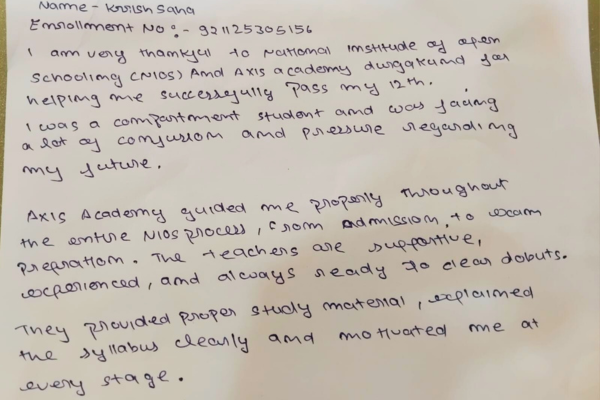 Name - Krrish Saha
Enrollment No :- 921125305156
I am very thankful to National Institude of open
Schooling (NIOS) And Axis academy durgakund for
helping me successfully pass my 12th.
I was a compartment student and was facing
a lot of confusion and pressure regarding
my future.
Axis Academy guided me properly throughout
the entire NIOS process, from Admission, to exam
prepration. The teachers are supportive,
experienced, and always ready to clear dobuts.
They provided proper study material, explained
the syllabus clearly and motivated me at
every stage.